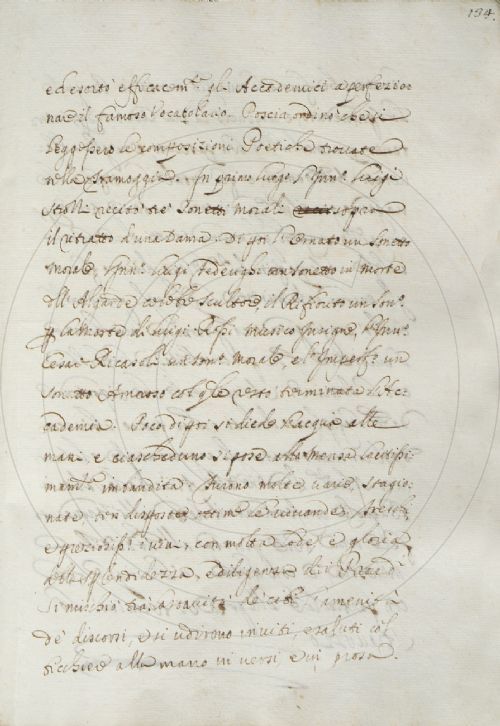 194.
ed esortò efficacem.te gli Accademici a perfezio
nare il famoso Vocabolario. Poscia ordinò che si
leggessero le composizioni Poetiche trovate
nella Tramoggia. In primo luogo l'Inn. Luigi
Strozzi recitò tre Sonetti morali sopra
il ritratto d'una Dama. Di poi l'Ornato un Sonetto
morale, l'Inn. Luigi un sonetto in morte
dell'Algardi celebre scultore, il Rifiorito un Son.
per la morte di Luigi Rossi musico insigne, l'Inn.
Cesare Ricasoli un son. morale, e l' un
sonetto Amoroso col q.le restò terminata l'Ac-
cademia. Poco di poi si diede l'acqua alle
mani, e ciascheduno si pose alla mensa lautissi-
mam.te imbandita. Furono molte, varie, stagio-
nate, ben disposte, ottime le vivande,
e preziosiss. i vini, con molta lode, e gloria
della splendidezza, e diligenza di
Si mischiò tra la de' cibi l'amenità
de' discorsi, e si udirono inviti, e saluti col
bicchiere alla mano in versi e in prosa.